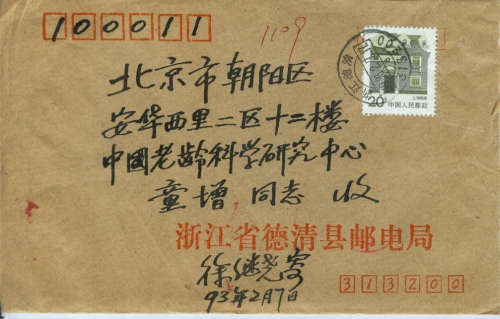 100011
1109
北京市朝阳区
安华西里二区十二楼
中國老龄科学研究中心
童增 同志 收
20
中国人民邮政
浙江省德清县邮电局
徐继尧寄
93年2月7日
313200